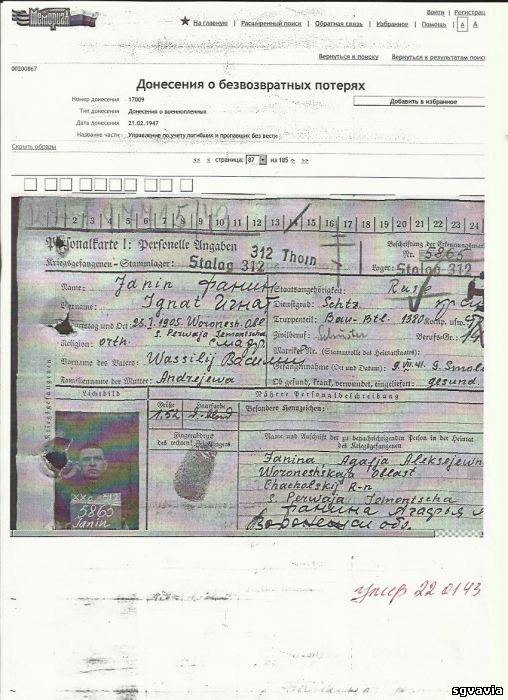 Мемориал
Войти | Регистрац
На главную | Расширенный поиск | Обратная связь | Избранное | Помощь | A A
Вернуться к поиску Вернуться к результатам поис
00200867
Донесения о безвозвратных потерях
Номер донесения 17009
Добавить в избранное
Тип донесения Донесения о военнопленных
Дата донесения 21.02.1947
Название части Управление по учету погибших и пропавших без вести
Скрыть образы
<< < страница: 87 из 185 > >>
2 3 4 5 6 7 8 9 10 11 12 13 14 15 16 17 18 19 20 21 22 23 24
Personalkarte I: Personelle Angaben
312 Thorn
Beschriftung der Erkennungsmar
Kriegsgefangenen-Stammlager: Stalag 312
Nr. 5865
Lager: Stalag 312
Name: Janin Фанин
Staatsangehörigkeit: Russe
Vorname: Ignat Игнат
Dienstgrad: Schtz
Geburtstag und Ort: 25.I.1905. Woronesh. Obl
Truppenteil: Bau-Btl. 1380 Komp. usw.
s. Perwaja
Religion: orth.
Zivilberuf: Berufs-Gr.:
Matrikel Nr. (Stammrolle des Heimatstaates):
Vorname des Vaters: Wassilij
Gefangennahme (Ort und Datum): 9.VII.41. G. Smol
Familienname der Mutter: Andrejewa
Ob gesund, krank, verwundet, eingeliefert: gesund
Lichtbild
Nähere Personalbeschreibung
Größe Haarfarbe
Besondere Kennzeichen:
1.52
Fingerabdruck
des rechten Zeigefingers
Name und Anschrift der zu benachrichtigenden Person in der Heimat
des Kriegsgefangenen
Janina Agafja Aleksejewn
Woroneshskaja Oblast
Chacholskij R-n
s. Perwaja
312
5865
Janin
обл.
умер 22 01 43
sgvavia